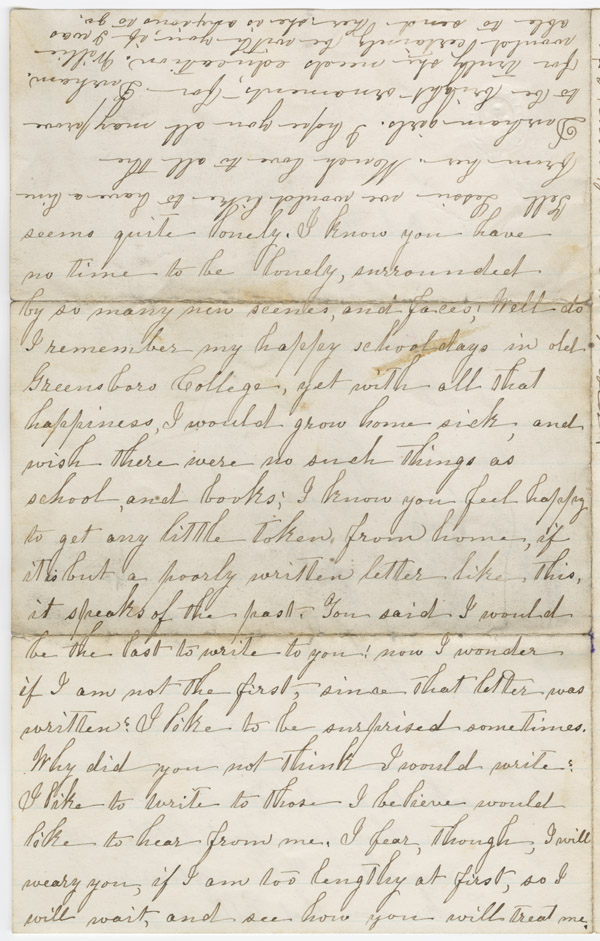 seems quite lonely. I know you have
no time to be lonely, surrounded
by so many new scenes, and faces; Well do
I remember my happy school days in old
Greensboro College, yet with all that
happiness, I would grow home sick, and
wish there were no such things as
school, and books; I know you feel happy
to get any little token, from home, if
it is but a poorly written letter like this,
it speaks of the past. You said I would
be the last to write to you! now I wonder
if I am not the first, since that letter was
written? I like to be surprised sometimes.
Why did you not think I would write?
I like to write to those I believe would
like to hear from me. I fear, though, I will
weary you, if I am too lengthy at first, so I
will wait, and see how you will treat me.
Tell we would like to have a line
from her. Much love to all the
Durham girls. I hope you all may prove
to be bright ornaments, for Durham.
for truly she needs education. Willie
would certainly be with you, if I was
able to send her, she is anxious to go.